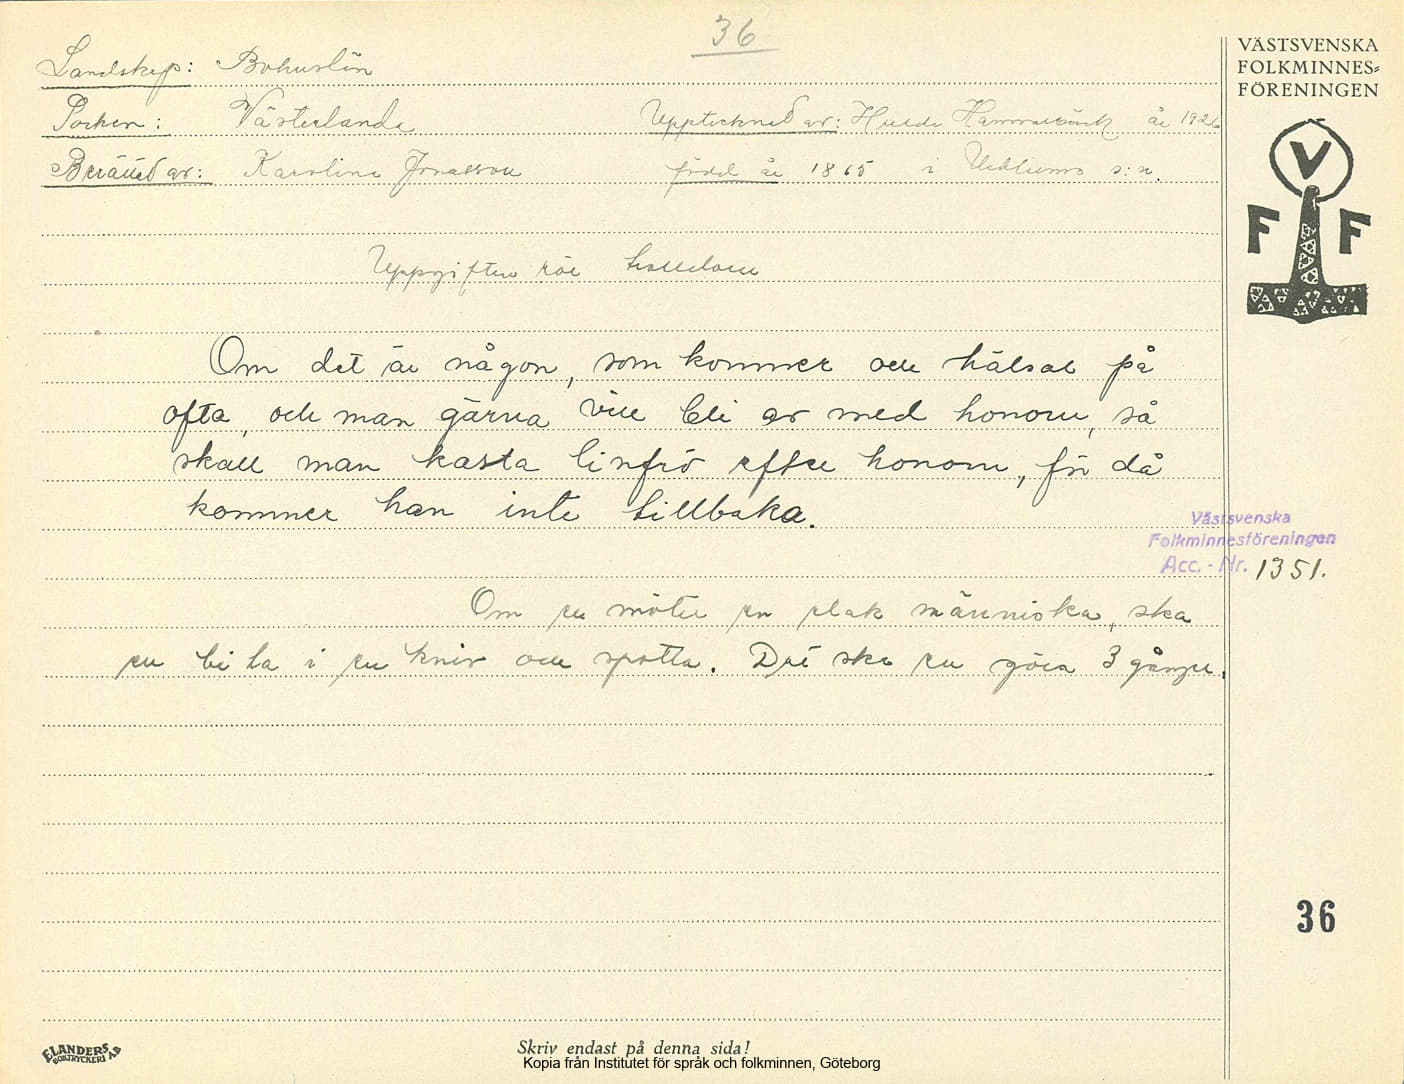 36
Landskap: Bohuslän
VÄSTSVENSKA
FOLKMINNES=
FÖRENINGEN
Socken: Västerlanda Upptecknad av: Hulda Hammarbäck år 1926
Berättad av: Karolina Jonasson född år 1865 i Ucklums s:n.
V
F F
Uppgiften rör trolldom
Om det är någon, som kommer och hälsar på
ofta, och man gärna vill bli av med honom, så
skall man kasta linfrö efter honom, för då
kommer han inte tillbaka.
Västsvenska
Folkminnesföreningen
Acc. - Nr. 1351.
Om en möter en elak människa, ska
en bita i en kniv och spotta. Det ska en göra 3 gånger.
36
ELANDERS BOKTRYCKERI AB
Skriv endast på denna sida!
Kopia från Institutet för språk och folkminnen, Göteborg